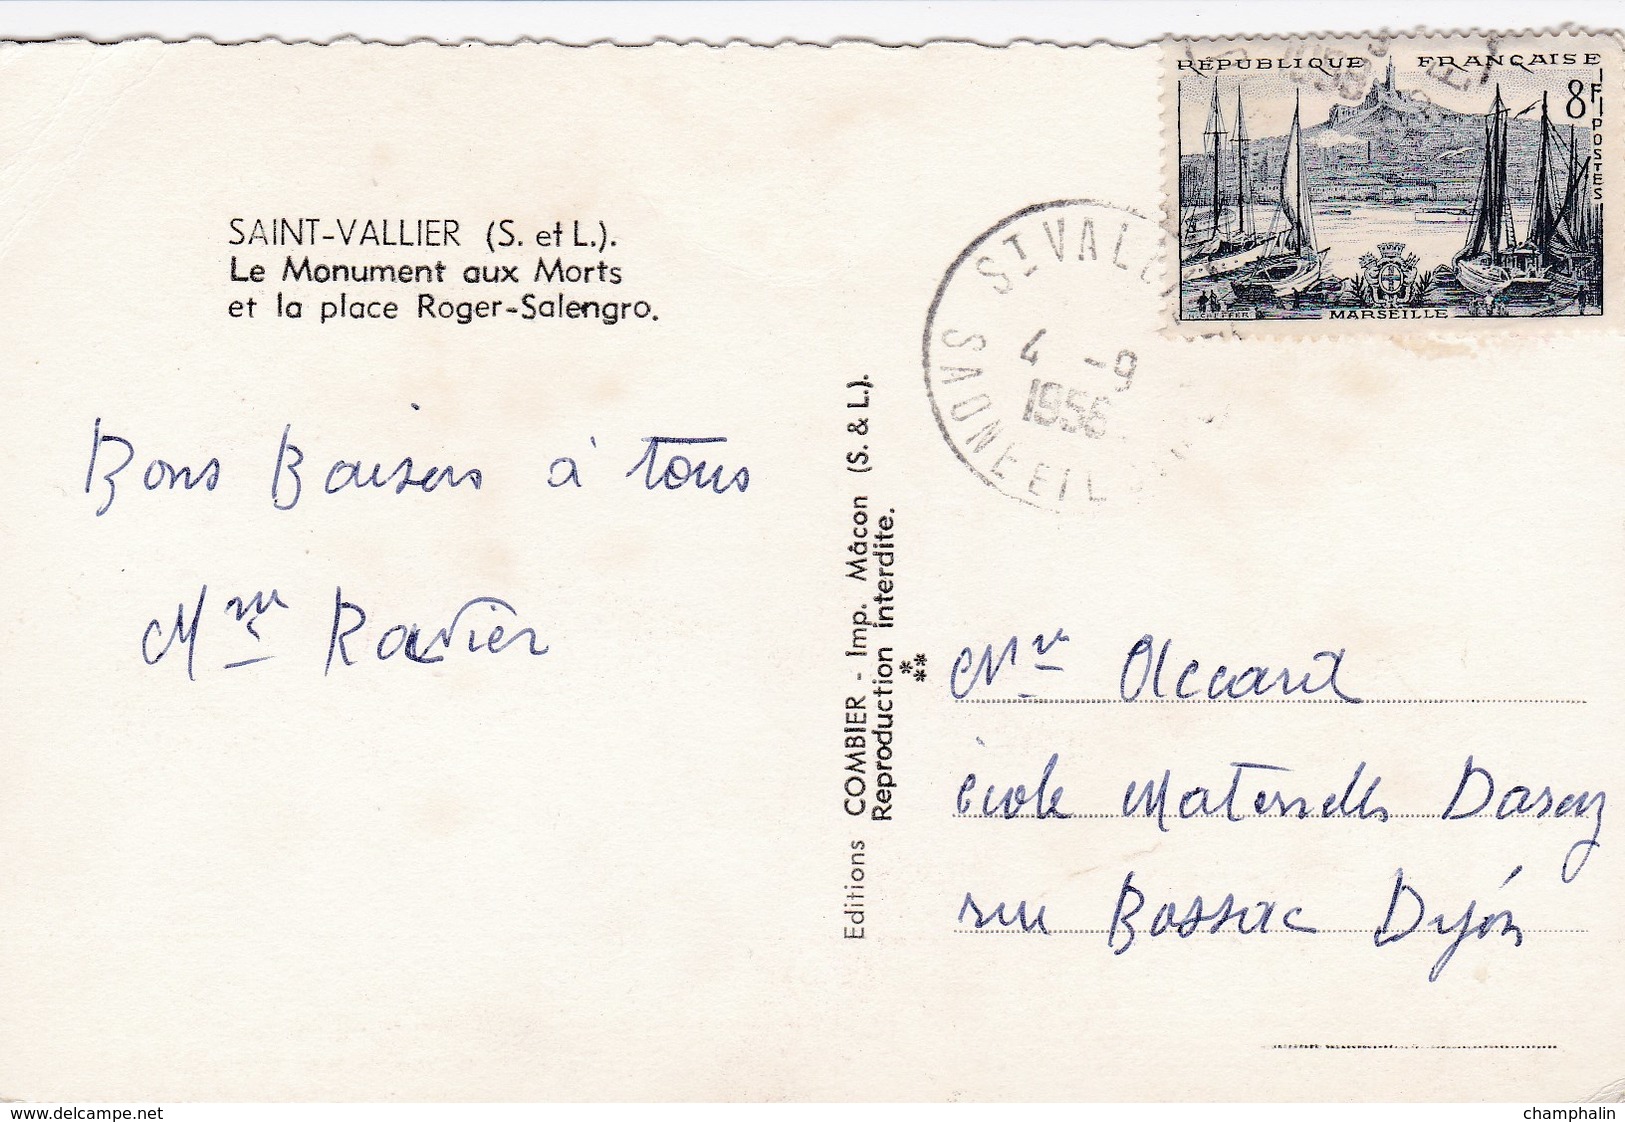 RÉPUBLIQUE FRANÇAISE
8F
POSTES
MARSEILLE
ST VALLIER
4 -9
1956
SAONE ET L
SAINT-VALLIER (S. et L.).
Le Monument aux Morts
et la place Roger-Salengro.
Bons Baisers à tous
Mme Ravier
Editions COMBIER - Imp. Mâcon (S. & L.).
Reproduction interdite.
Mr Accard
école Maternelle Darcy
rue Bossac Dijon
www.delcampe.net
champhalin